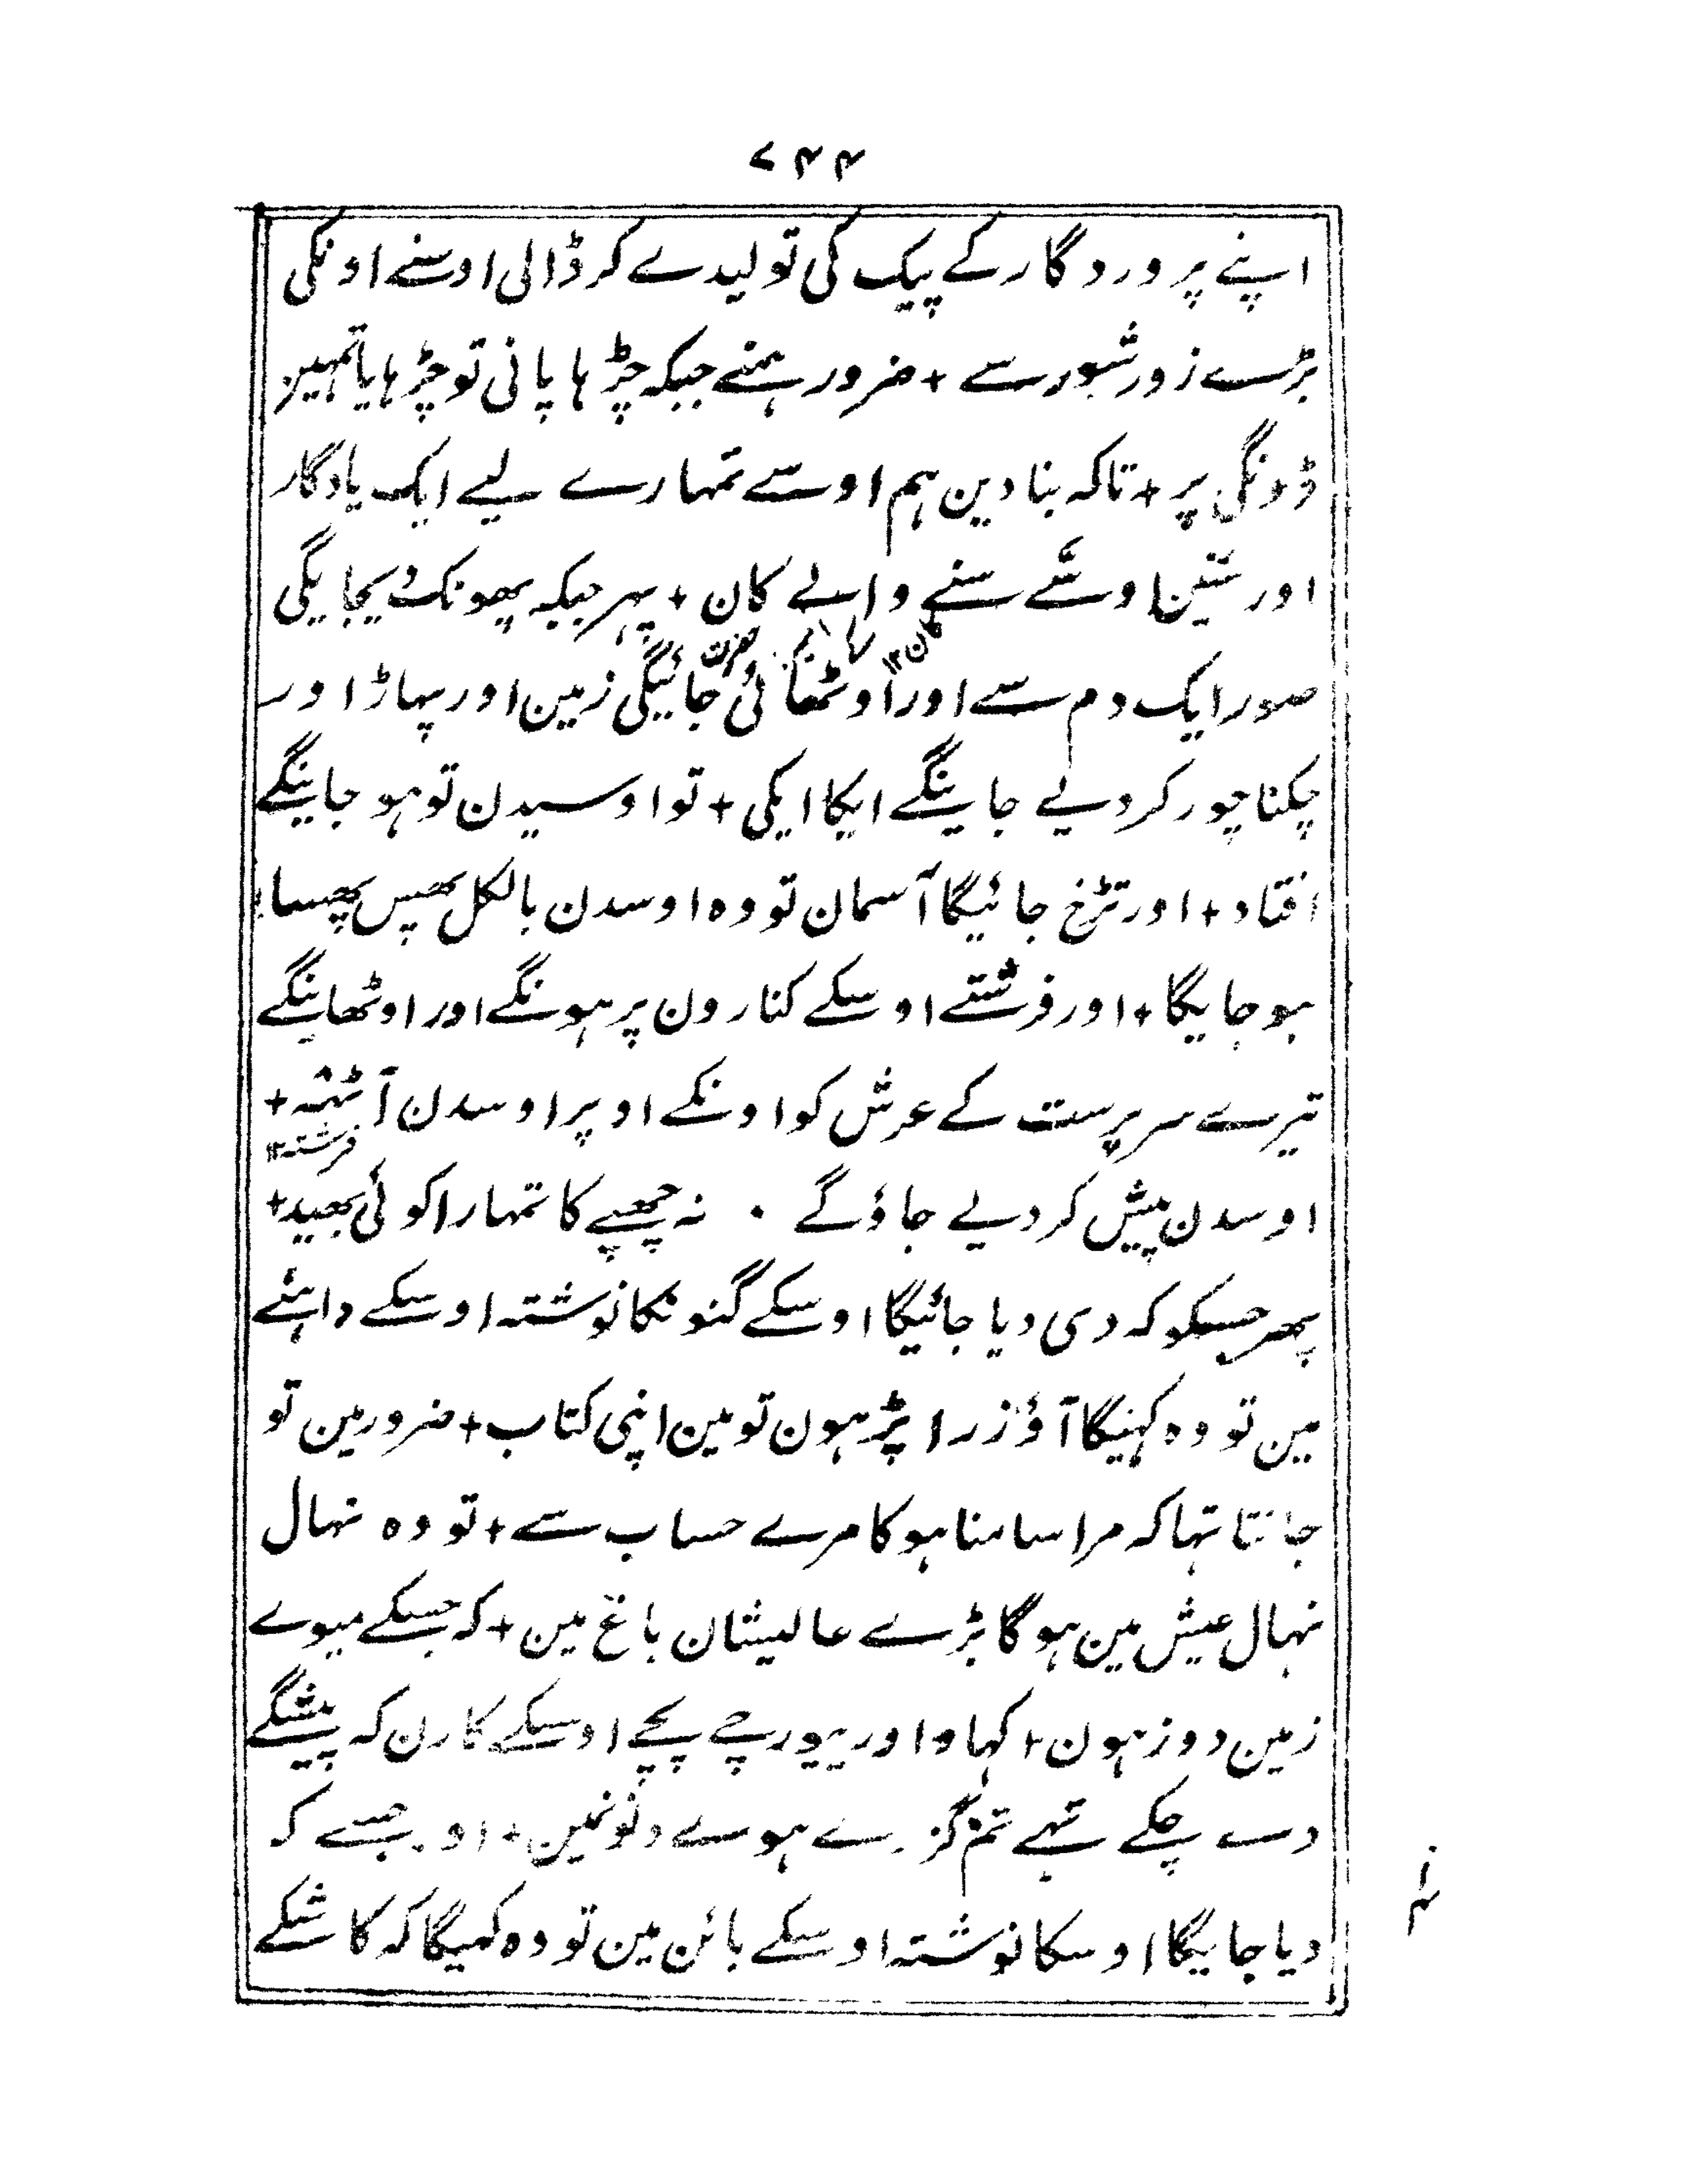 ۷۴۴
اپنے پروردگار کے پیک کی تو لیدے کر ڈالی اوسنے اونکی
بڑے زور شور سے + ضرور ہمنے جبکہ چڑہا پانی تو چڑہایا تمہین
ڈونگی پر + تاکہ بنا دین ہم اوسے تمہارے لیے ایک یادگار
اور سنین اوسے سننے والے کان + پہر جبکہ پھونک دیجایگی
صور ایک دم سے اور اوٹھائی جائیگی زمین اور پہاڑ اور
چکنا چور کر دیے جاینگے ایکا ایکی + تو اوسیدن تو ہو جاینگے
افتاد + اور تڑخ جائیگا آسمان تو وہ اوسدن بالکل پھس پھسا
ہو جایگا + اور فرشتے اوسکے کنارون پر ہونگے اور اوٹھاینگے
تیرے سرپرست کے عرش کو اونکے اوپر اوسدن آٹھہ +
فرشتہ ۱۲
اوسدن پیش کر دیے جاؤگے ۰ نہ چھپے گا تمہارا کوئی بھید +
پھر جسکو کہ دی دیا جائیگا اوسکے گنونکا نوشتہ اوسکے داہنے
مین تو وہ کہنیگا آؤ زرا پڑہون تو مین اپنی کتاب + ضرور مین تو
جانتا تہا کہ مرا سامنا ہوگا مرے حساب سے + تو وہ نہال
نہال عیش مین ہوگا بڑے عالیشان باغ مین + کہ جسکے میوے
زمین دوز ہون + کہاو اور پیو رچے پچے اوسکے کارن کہ پیشگے
دے چکے تہے تم گزرے ہوے دنونمین + اور جسے کہ
دیا جایگا اوسکا نوشتہ اوسکے بائن مین تو وہ کہیگا کہ کاشکے